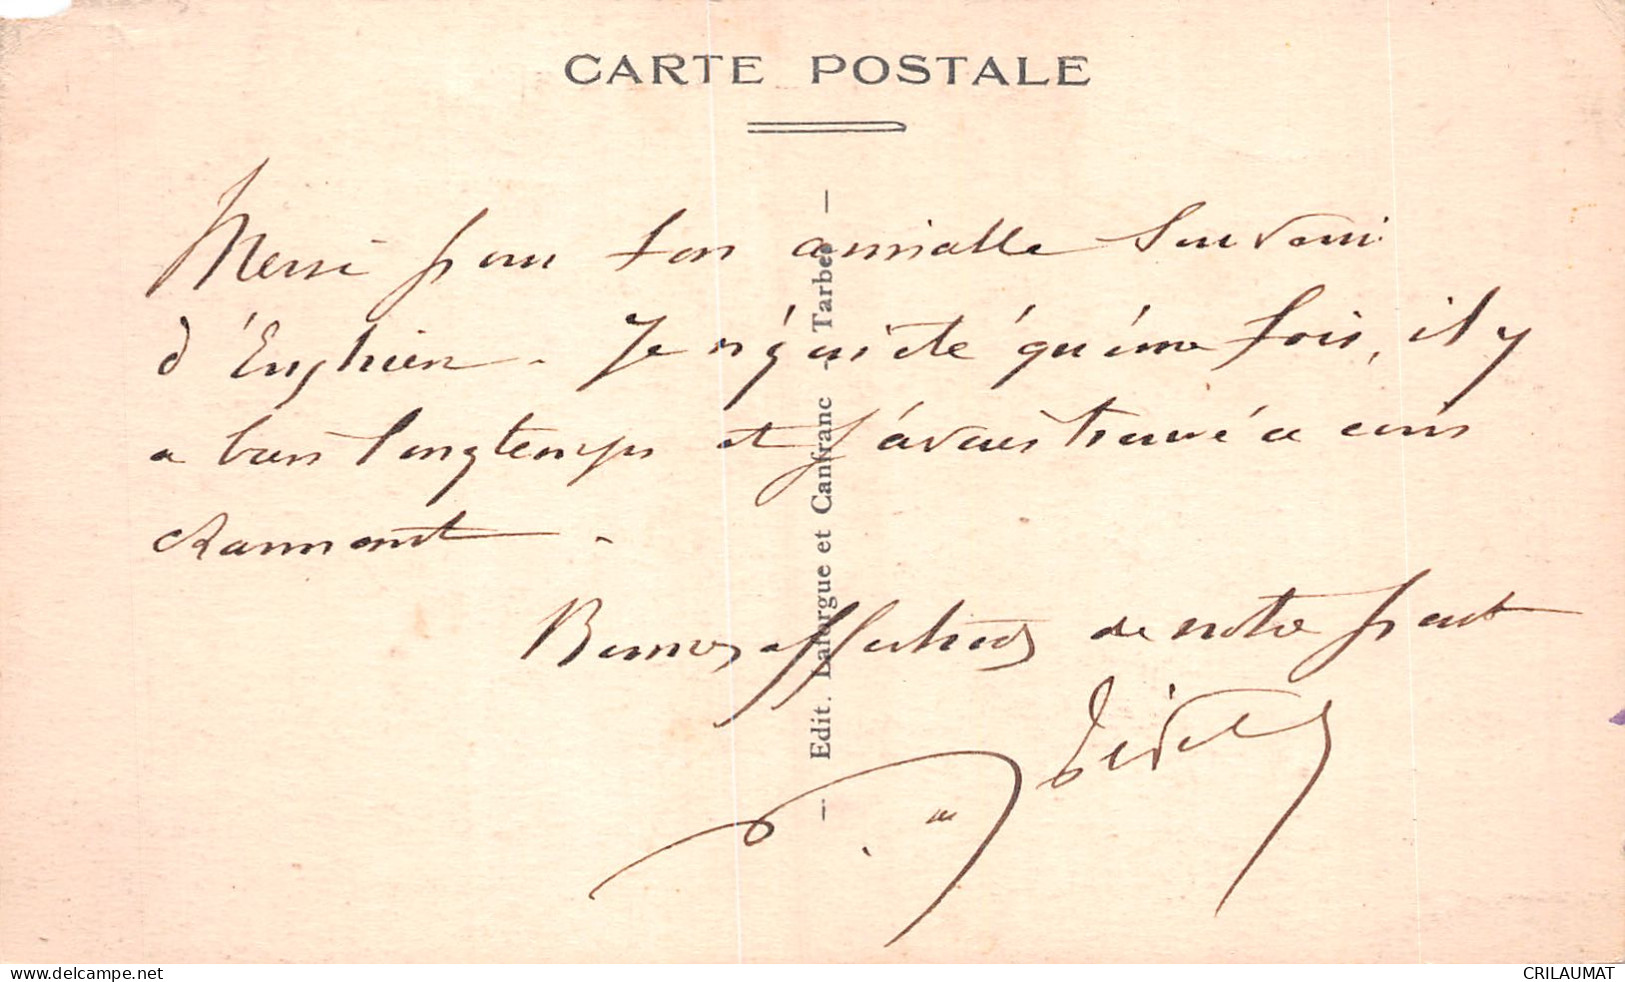 CARTE POSTALE
Merci pour ton aimable souvenir
d'Enghien. Je n'y ai été qu'une fois, il y
a bien longtemps et j'avais trouvé ce coin
charmant.
Bonnes affections de notre part
— Edit. Laforgue et Canfranc - Tarbes —
delcampe.net
CRILAUMAT